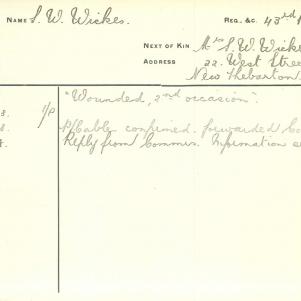 NAME S. W. Wickes. REG. &C. 43rd
NEXT OF KIN Mrs S. W. Wick
ADDRESS 22. West Stree
New Thebarton
"Wounded, 2nd occasion".
3. 1/P
8. P/Cable confirmed. forwarded Co
Reply from Commrs. Information